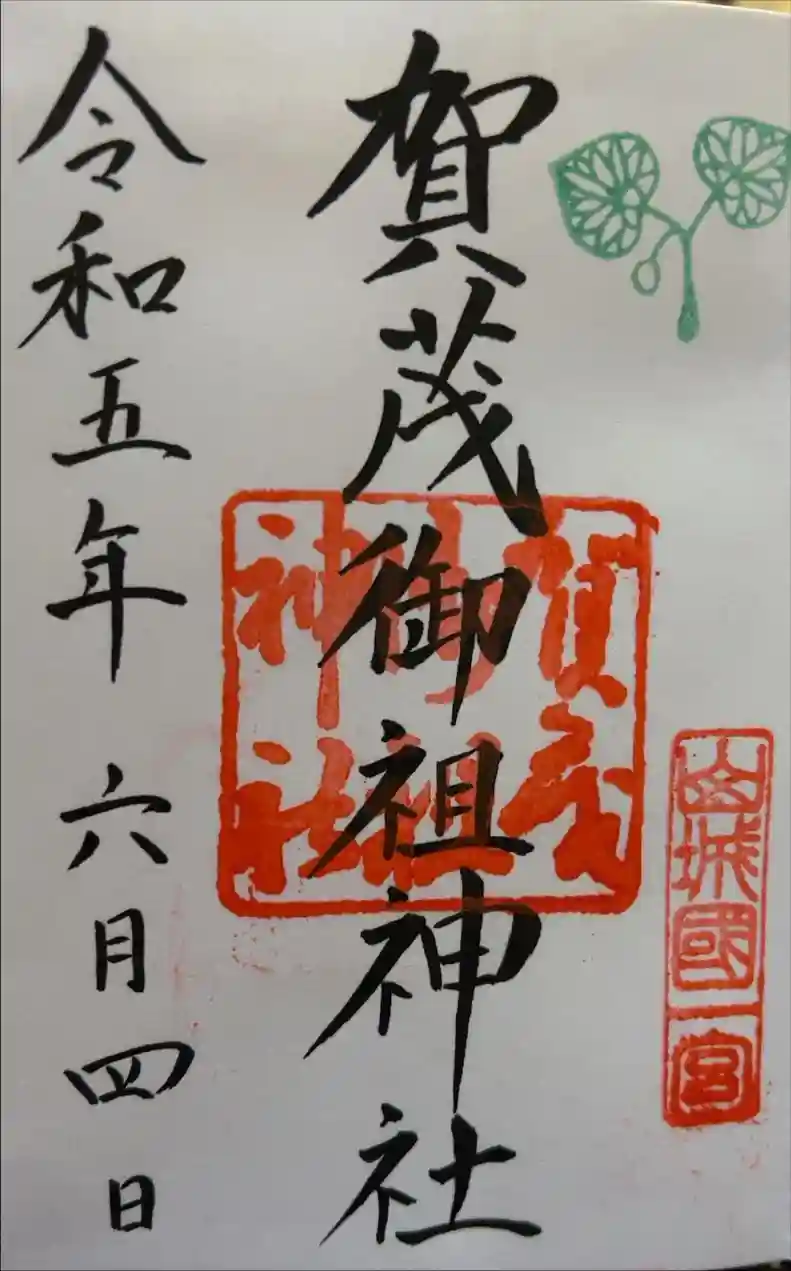 山城國一宮
賀茂御祖神社
賀茂
御祖
神社
令和五年 六月四日